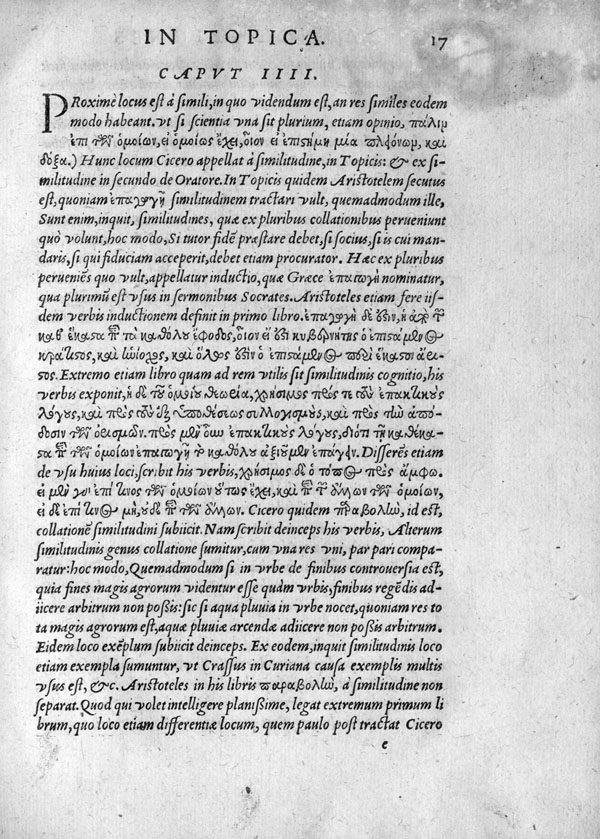 IN TOPICA. 17
CAPVT IIII.
PRoximè locus est à simili, in quo videndum est, an res similes eodem
modo habeant. vt si scientia vna sit plurium, etiam opinio, πάλιν
ἐπὶ τῶν ὁμοίων, εἰ ὁμοίως ἔχει, οἷον εἰ ἐπιστήμη μία πλειόνων, καὶ
δόξα.) Hunc locum Cicero appellat à similitudine, in Topicis: & ex si-
militudine in secundo de Oratore. In Topicis quidem Aristotelem secutus
est, quoniam ἐπαγωγῇ similitudinem tractari vult, quemadmodum ille,
Sunt enim, inquit, similitudines, quæ ex pluribus collationibus perueniunt
quò volunt, hoc modo, Si tutor fidē præstare debet, si socius, si is cui man-
daris, si qui fiduciam acceperit, debet etiam procurator. Hæc ex pluribus
perueniēs quo vult, appellatur inductio, quæ Græce ἐπαγωγὴ nominatur,
qua plurimū est vsus in sermonibus Socrates. Aristoteles etiam fere iis-
dem verbis inductionem definit in primo libro. ἐπαγωγὴ δέ ἐστιν, ἡ ἀπὸ τ
καθ' ἕκαστα ἐπὶ τὰ καθόλου ἔφοδος, οἷον εἰ ἔστι κυβερνήτης ὁ ἐπιστάμενος
κράτιστος, καὶ ἡνίοχος, καὶ ὅλως ἐστὶν ὁ ἐπιστάμενος περὶ ἕκαστον ἄρι-
στος. Extremo etiam libro quam ad rem vtilis sit similitudinis cognitio, his
verbis exponit, ἡ δὲ τοῦ ὁμοίου θεωρία, χρήσιμος πρός τε τοὺς ἐπακτικοὺς
λόγους, καὶ πρὸς τοὺς ἐξ ὑποθέσεως συλλογισμοὺς, καὶ πρὸς τὴν ἀπό-
δοσιν τῶν ὁρισμῶν. πρὸς μὲν οὖν ἐπακτικοὺς λόγους, διότι τῇ καθέκα-
στα ἐπὶ τῶν ὁμοίων ἐπαγωγῇ τ καθόλου ἀξιοῦμεν ἐπάγειν. Differēs etiam
de vsu huius loci, scribit his verbis, χρήσιμος δὲ ὁ τόπος πρὸς ἄμφω.
εἰ μὲν ἐπί τινος τῶν ὁμοίων οὕτως ἔχει, καὶ ἐπὶ τ ἄλλων τῶν ὁμοίων,
εἰ δὲ ἐπί τινος μὴ, οὐδ' ἐπὶ τῶν ἄλλων. Cicero quidem παραβολὴν, id est,
collationē similitudini subiicit. Nam scribit deinceps his verbis, Alterum
similitudinis genus collatione sumitur, cum vna res vni, par pari compa-
ratur: hoc modo, Quemadmodum si in vrbe de finibus controuersia est,
quia fines magis agrorum videntur esse quàm vrbis, finibus regēdis ad-
iicere arbitrum non possis: sic si aqua pluuia in vrbe nocet, quoniam res to
ta magis agrorum est, aquæ pluuiæ arcendæ adiicere non possis arbitrum.
Eidem loco exēplum subiicit deinceps. Ex eodem, inquit similitudinis loco
etiam exempla sumuntur, vt Crassus in Curiana causa exemplis multis
vsus est, &c. Aristoteles in his libris παραβολὴν, à similitudine non
separat. Quod qui volet intelligere planissime, legat extremum primum li
brum, quo loco etiam differentiæ locum, quem paulo post tractat Cicero
e